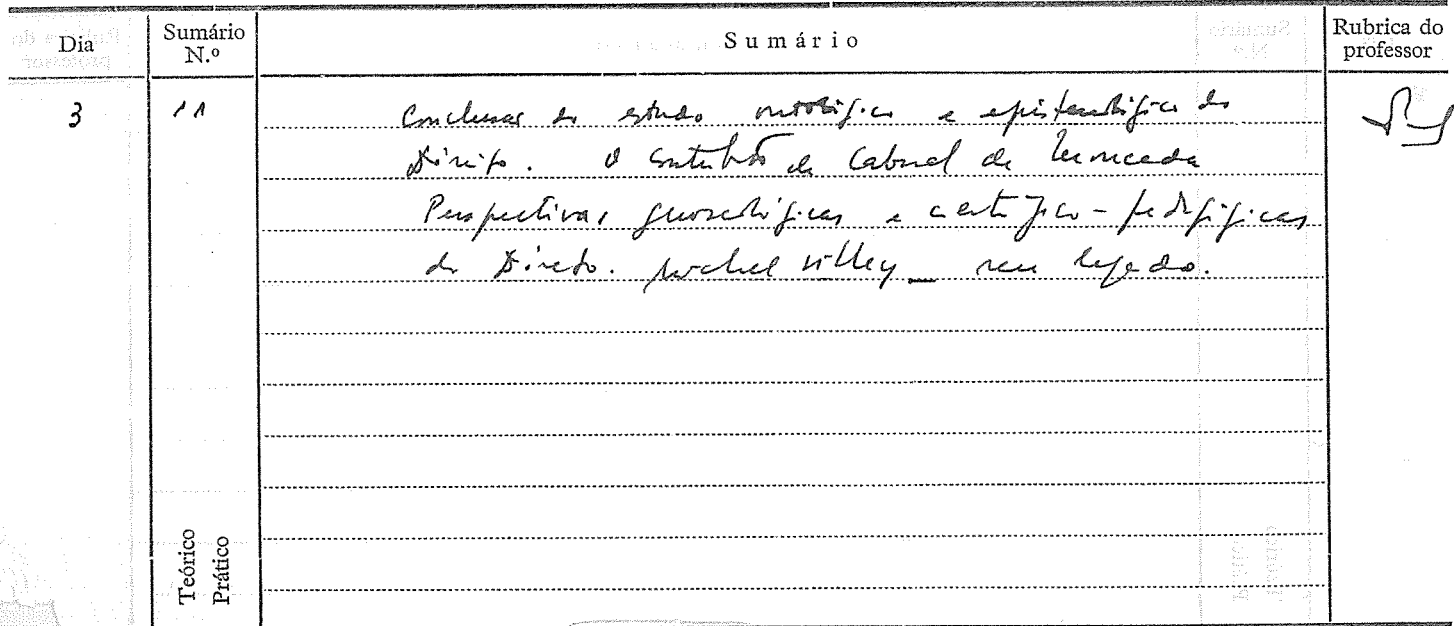 Dia
Sumário N.º
Sumário
Rubrica do professor
3
11
Conclusão do estudo ontológico e epistemológico do
Direito. O contributo de Cabral de Moncada
Perspectivas gnoseológicas e científico-pedagógicas
do Direito. Michel Villey _ seu legado.
Teórico
Prático